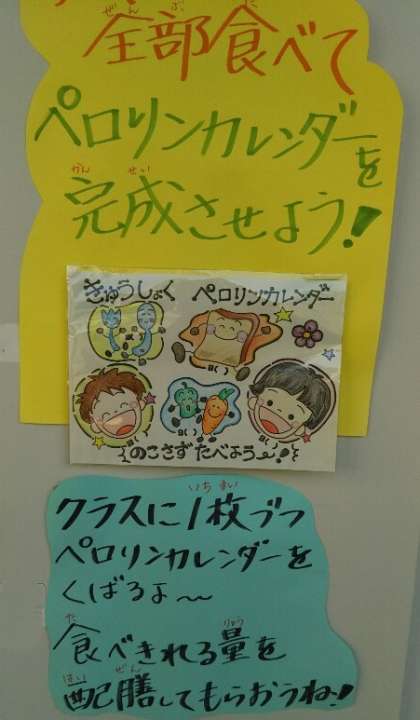 全部食べて
ぜんぶ た
ペロリンカレンダーを
完成させよう!
かんせい
きゅうしょく ペロリンカレンダー
のこさずたべよう〜!
クラスに1枚づつ
いちまい
ペロリンカレンダーを
くばるよ〜
食べきれる量を
た りょう
配膳してもらおうね!
はいぜん